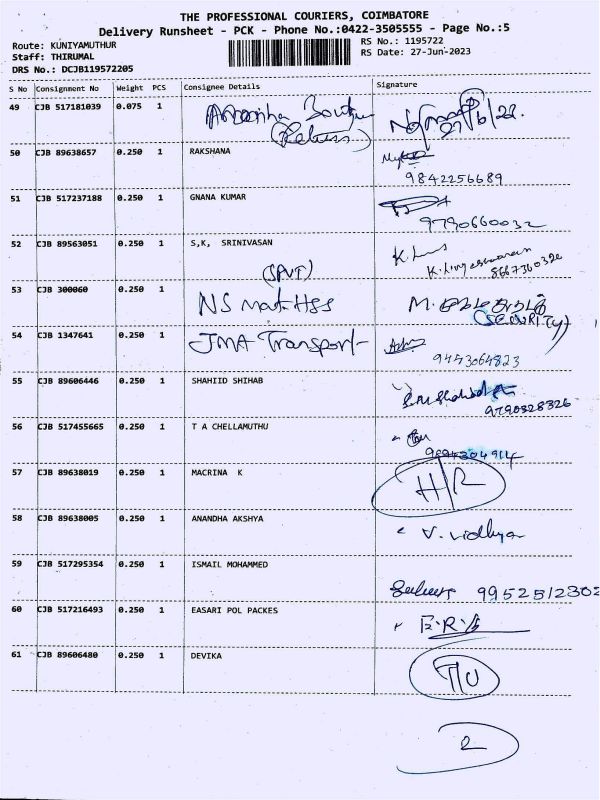 THE PROFESSIONAL COURIERS, COIMBATORE
Delivery Runsheet - PCK - Phone No.:0422-3505555 - Page No.:5
Route: KUNIYAMUTHUR
RS No.: 1195722
Staff: THIRUMAL
RS Date: 27-Jun-2023
DRS No.: DCJB119572205
S No Consignment No Weight PCS Consignee Details Signature
49 CJB 517181039 0.075 1
50 CJB 89638657 0.250 1 RAKSHANA
9842256689
51 CJB 517237188 0.250 1 GNANA KUMAR
9790660032
52 CJB 89563051 0.250 1 S,K, SRINIVASAN
53 CJB 300060 0.250 1 NS
(SECURITY)
54 CJB 1347641 0.250 1 JMA Transport
9453064823
55 CJB 89606446 0.250 1 SHAHIID SHIHAB
9790328326
56 CJB 517455665 0.250 1 T A CHELLAMUTHU
57 CJB 89638019 0.250 1 MACRINA K
H/R
58 CJB 89638005 0.250 1 ANANDHA AKSHYA
V. Vidhya
59 CJB 517295354 0.250 1 ISMAIL MOHAMMED
9952512302
60 CJB 517216493 0.250 1 EASARI POL PACKES
61 CJB 89606480 0.250 1 DEVIKA
2